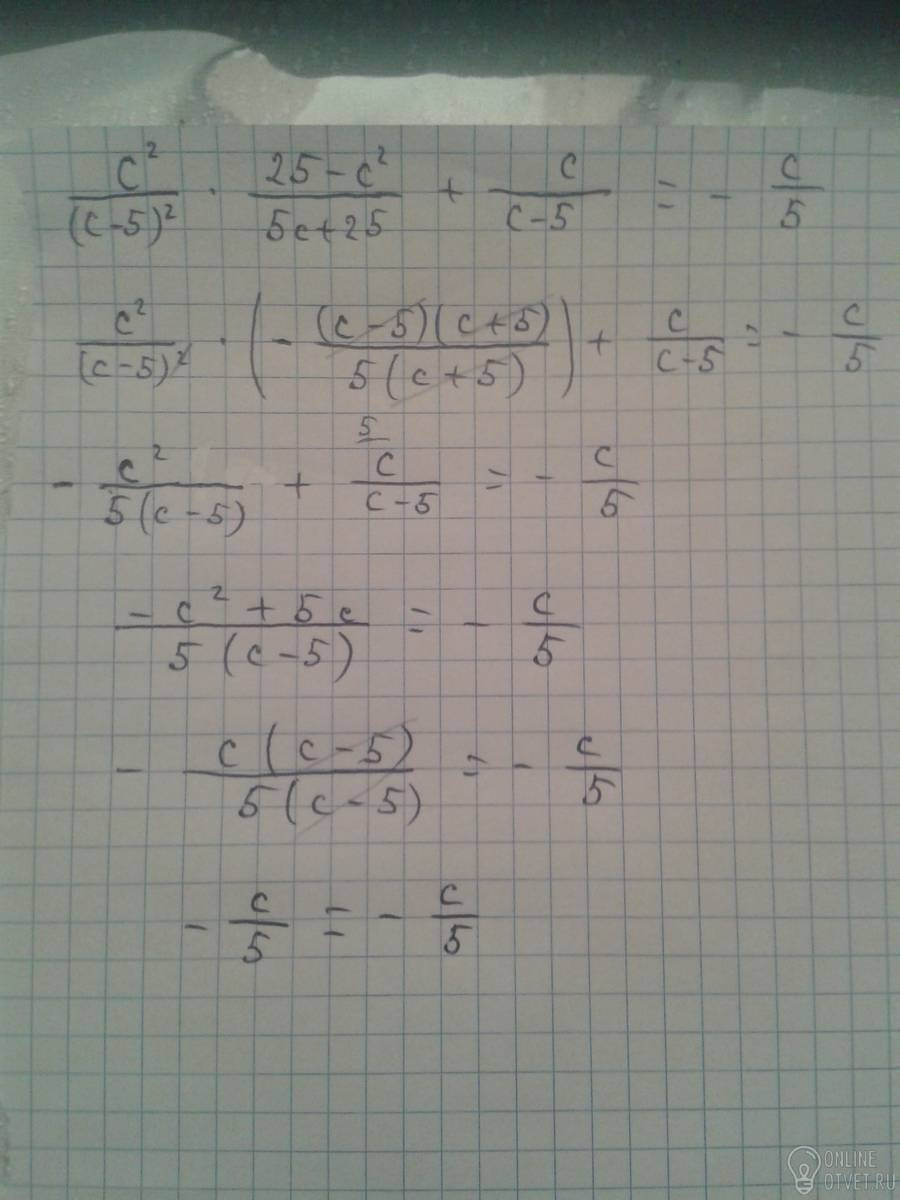 c²/(c-5)² · (25-c²)/(5c+25) + c/(c-5) = - c/5
c²/(c-5)² · (- (c-5)(c+5)/5(c+5)) + c/(c-5) = - c/5
- c²/5(c-5) + 5 c/(c-5) = - c/5
(-c²+5c)/5(c-5) = - c/5
- c(c-5)/5(c-5) = - c/5
- c/5 = - c/5
ONLINE
OTVET.RU